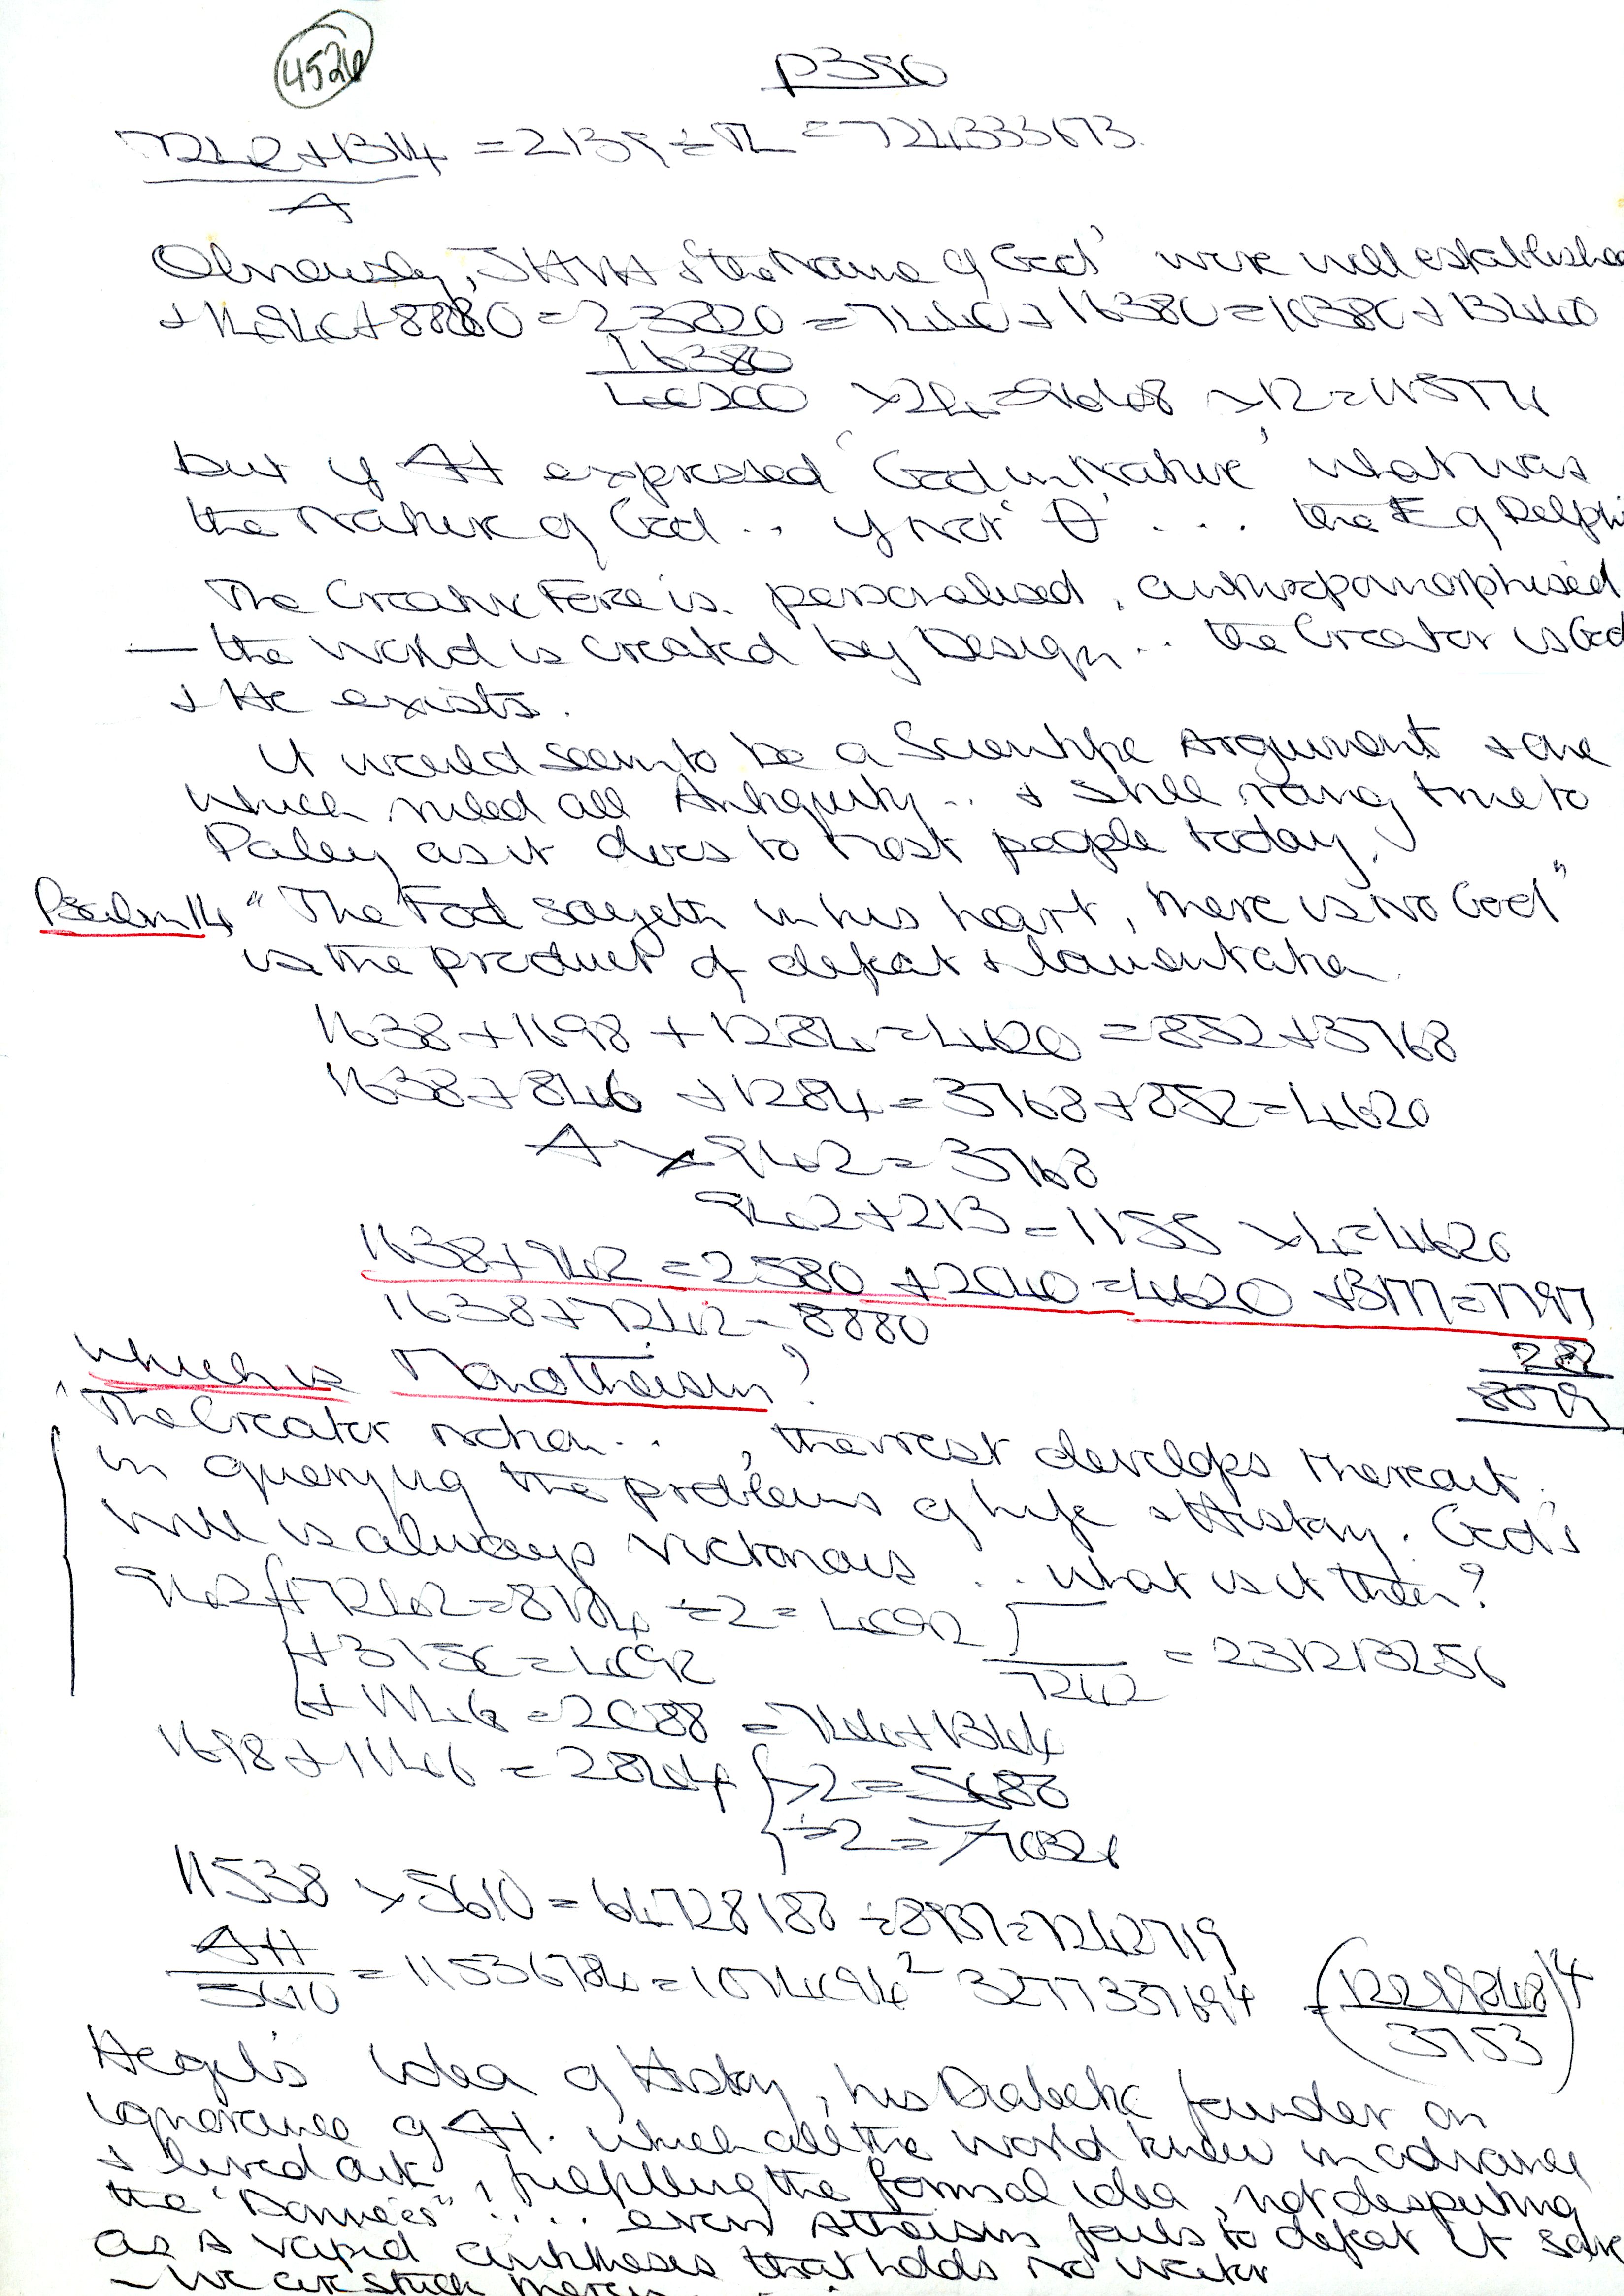 4526
p390
= 2139 ÷
Obviously, JAHVA & 'the Name of God' were well established
+ 8880 = 23820 = 7440 + 16380 = 10380 + 13440
16380
40200
but if expressed 'God in Nature' what was
the Nature of God .. if not θ ... the E of Delphi
The Creative Force is personalised, anthropomorphised
— the World is created by Design .. the Creator is God
& He exists.
It would seem to be a Scientific Argument & one
which ruled all Antiquity .. & still rang true to
Paley as it does to most people today.
Psalm 14 "The Fool sayeth in his heart, there is no God"
is the product of defeat & lamentation.
1638 + 1698 + 1284 = 4620 = 852 + 3768
1638 + 846 + 1284 = 3768 + 852 = 4620
× 942 = 3768
942 + 213 = 1155 × 4 = 4620
1638 + 942 = 2580 + 2040 = 4620 + 3177 = 7797
1638 + 7242 = 8880
282
8079
Which is Monotheism?
'The Creator notion .. , the rest develops thereout
in querying the problems of life & History. God's
Will is always victorious .. what is it then?
942 + 7242 = 8184 ÷ 2 = 4092
+ 3150 = 4092
7242 = 231213256
+ 1146 = 2088 = 744 + 1344
1698 + 1146 = 2844 × 2 = 5688
÷ 2 =
11538 × 5610 = 64728188 ÷ 8937 = 7242719
5610 = 11536784 = 1074094² 3277337694
3753
Hegel's idea of History, his Dialectic founder on
ignorance of which all the world knew in advance
& lived out, fulfilling the formal idea, not disputing
the "Données" .... even Atheism fails to defeat it save
as a vapid antitheses that holds no water
— We are stuck